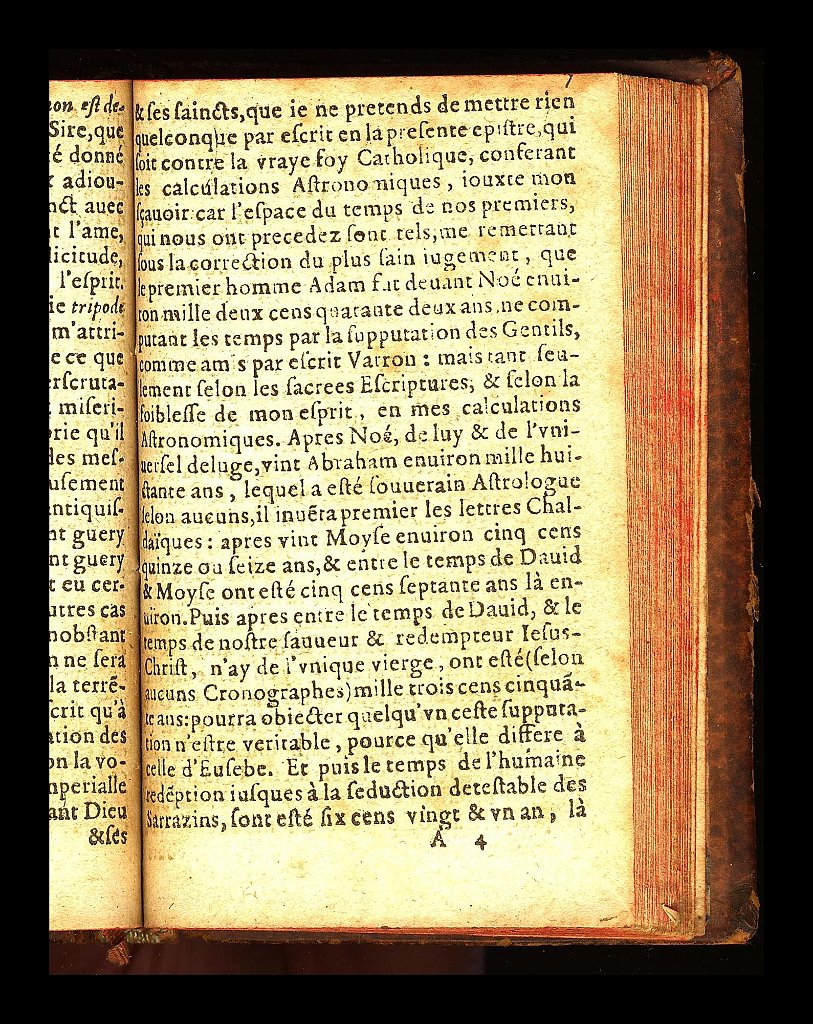 on est de-
Sire,que
é donné
adiou-
nct auec
l'ame,
licitude,
l'esprit.
ie tripode
m'attri-
e ce que
erscruta-
miseri-
rie qu'il
des mes-
usement
ntiquis-
nt guery
nt guery
eu cer-
utres cas
nobstant
n ne sera
la terrē-
crit qu'à
ation des
on la vo-
mperialle
ant Dieu
&ses
7
& ſes ſaincts,que ie ne pretends de mettre rien
quelconque par eſcrit en la preſente epiſtre,qui
ſoit contre la vraye foy Catholique, conferant
les calculations Aſtronomiques , iouxte mon
ſçauoir:car l'eſpace du temps de nos premiers,
qui nous ont precedez ſont tels,me remettant
ſous la correction du plus ſain iugement , que
le premier homme Adam fut deuant Noé enui-
ron mille deux cens quarante deux ans ne com-
putant les temps par la ſupputation des Gentils,
comme a mis par eſcrit Varron : mais tant ſeu-
lement ſelon les ſacrees Eſcriptures, & ſelon la
foibleſſe de mon eſprit , en mes calculations
Aſtronomiques. Apres Noé, de luy & de l'vni-
uerſel deluge,vint Abraham enuiron mille hui-
ctante ans , lequel a eſté ſouuerain Aſtrologue
ſelon aucuns,il inuēta premier les lettres Chal-
daïques : apres vint Moyſe enuiron cinq cens
quinze ou ſeize ans,& entre le temps de Dauid
& Moyſe ont eſté cinq cens ſeptante ans là en-
uiron.Puis apres entre le temps de Dauid, & le
temps de noſtre ſauueur & redempteur Ieſus-
Chriſt, n'ay de l'vnique vierge , ont eſté(ſelon
aucuns Cronographes)mille trois cens cinquā-
te ans:pourra obiecter quelqu'vn ceſte ſupputa-
tion n'eſtre veritable , pource qu'elle differe à
celle d'Euſebe. Et puis le temps de l'humaine
redēption iuſques à la ſeduction deteſtable des
Sarrazins, ſont eſté ſix cens vingt & vn an , là
A 4